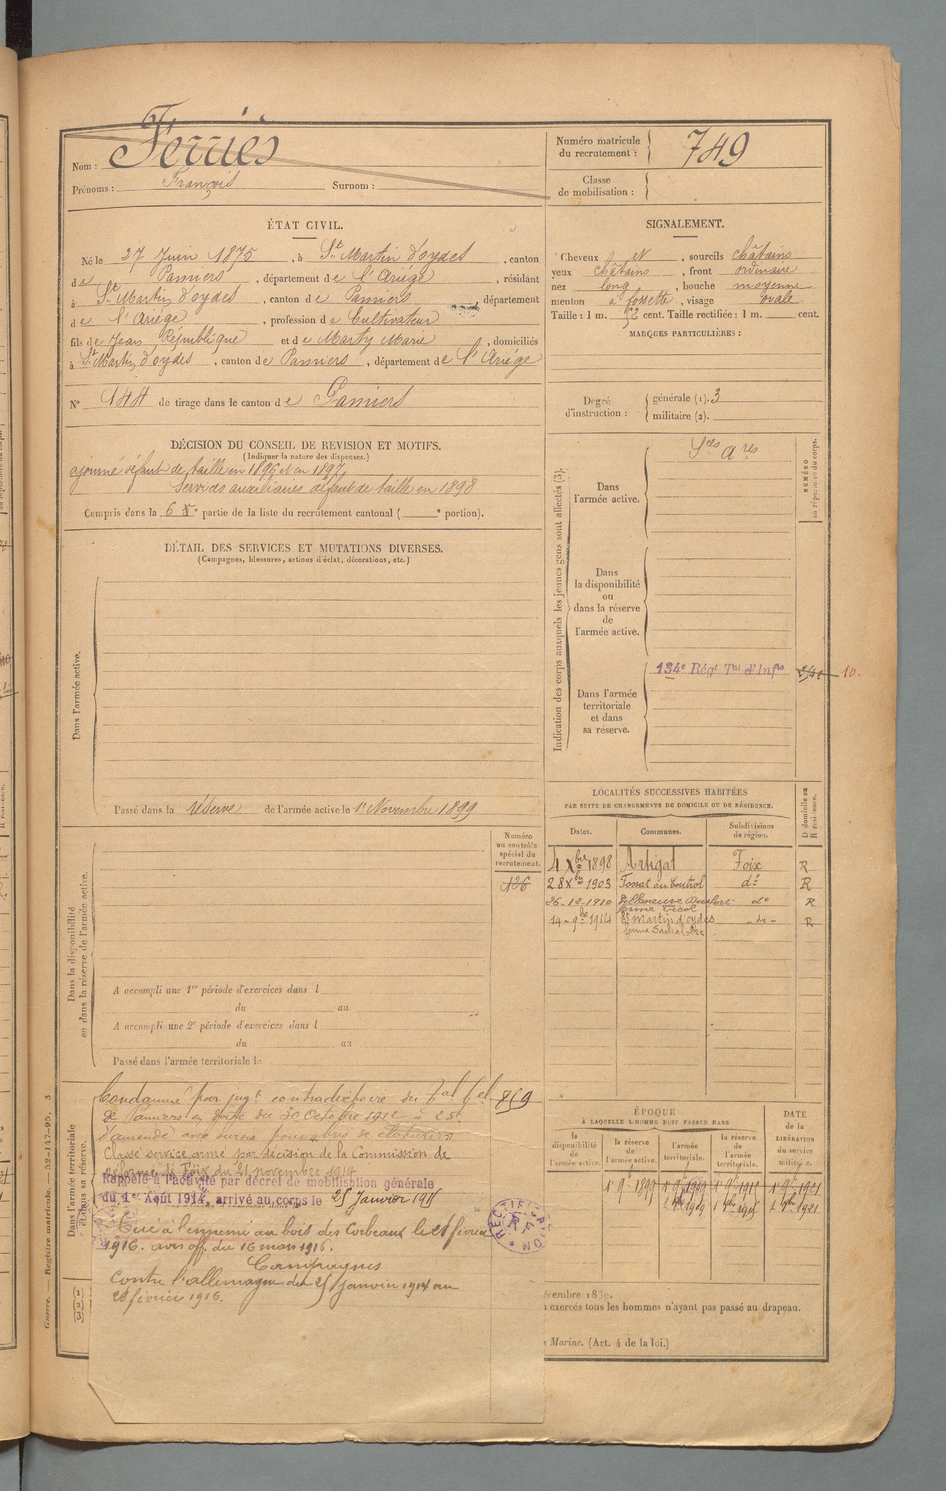 Nom : Ferriès
Prénoms : François Surnom :
Numéro matricule du recrutement : 749
Classe de mobilisation :
ÉTAT CIVIL.
Né le 27 Juin 1875, à St Martin d'oydes, canton
de Pamiers, département de l'Ariége, résidant
à St Martin d'oydes, canton de Pamiers, département
de l'Ariége, profession de Cultivateur
fils de Jean République et de Marty Marie, domiciliés
à St Martin d'oydes, canton de Pamiers, département de l'Ariége
N° 144 de tirage dans le canton de Pamiers
SIGNALEMENT.
Cheveux et, sourcils châtains
yeux châtains, front ordinaire
nez long, bouche moyenne
menton à fossette, visage ovale
Taille : 1 m. 52 cent. Taille rectifiée : 1 m. cent.
MARQUES PARTICULIÈRES :
Degré d'instruction : générale (1). 3
militaire (2).
DÉCISION DU CONSEIL DE REVISION ET MOTIFS.
(Indiquer la nature des dispenses.)
ajourné défaut de taille en 1896 et en 1897,
Services auxiliaires défaut de taille en 1898
Compris dans la 6e partie de la liste du recrutement cantonal ( e portion).
DÉTAIL DES SERVICES ET MUTATIONS DIVERSES.
(Campagnes, blessures, actions d'éclat, décorations, etc.)
Dans l'armée active.
Passé dans la réserve de l'armée active le 1er Novembre 1899
Indication des corps auxquels les jeunes gens sont affectés (3).
NUMÉRO au répertoire du corps.
Dans l'armée active.
Sces Ares
Dans la disponibilité ou dans la réserve de l'armée active.
Dans l'armée territoriale et dans sa réserve.
134e Régt Tal d'Infie
10.
LOCALITÉS SUCCESSIVES HABITÉES
PAR SUITE DE CHANGEMENTS DE DOMICILE OU DE RÉSIDENCE.
Dates. Communes. Subdivisions de région. D domicile ou R résidence.
4 Xbre 1898 Artigat Foix R
28 Xbre 1903 Fossat au Control do R
26-12-1910 do R
14-9bre 1914 St Martin d'oydes -do- R
Dans la disponibilité ou dans la réserve de l'armée active.
Numéro au contrôle spécial du recrutement.
126
A accompli une 1re période d'exercices dans l
du au
A accompli une 2e période d'exercices dans l
du au
Passé dans l'armée territoriale le
Dans l'armée territoriale et dans sa réserve.
Condamné par jugt contradictoire du Bal Cel 859
de Pamiers en date du 30 Octobre 1912 à 25f
d'amende avec sursis pour bris de clôture
Classé service armé par décision de la Commission de
réforme de Foix du 21 novembre 1914
Rappelé à l'activité par décret de mobilisation générale
du 1er Août 1914, arrivé au corps le 25 Janvier 1915
Tué à l'ennemi au bois des Corbeaux le 28 février
1916. avis off. du 16 mars 1916.
Campagnes
Contre l'allemagne du 25 Janvier 1915 au
28 février 1916.
RECTIFICATION
ÉPOQUE
À LAQUELLE L'HOMME DOIT PASSER DANS
la disponibilité de l'armée active. la réserve de l'armée active. l'armée territoriale. la réserve de l'armée territoriale.
DATE de la LIBÉRATION du service militaire.
1er 9bre 1899
exercés tous les hommes n'ayant pas passé au drapeau.
Marine. (Art. 4 de la loi.)
Guerre. — Registre matricule. — 52-147-95. 3